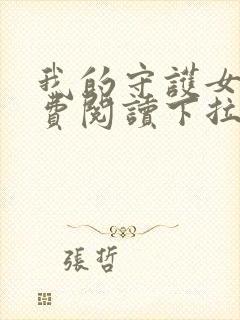 我的守護女
費閱讀下拉
張哲